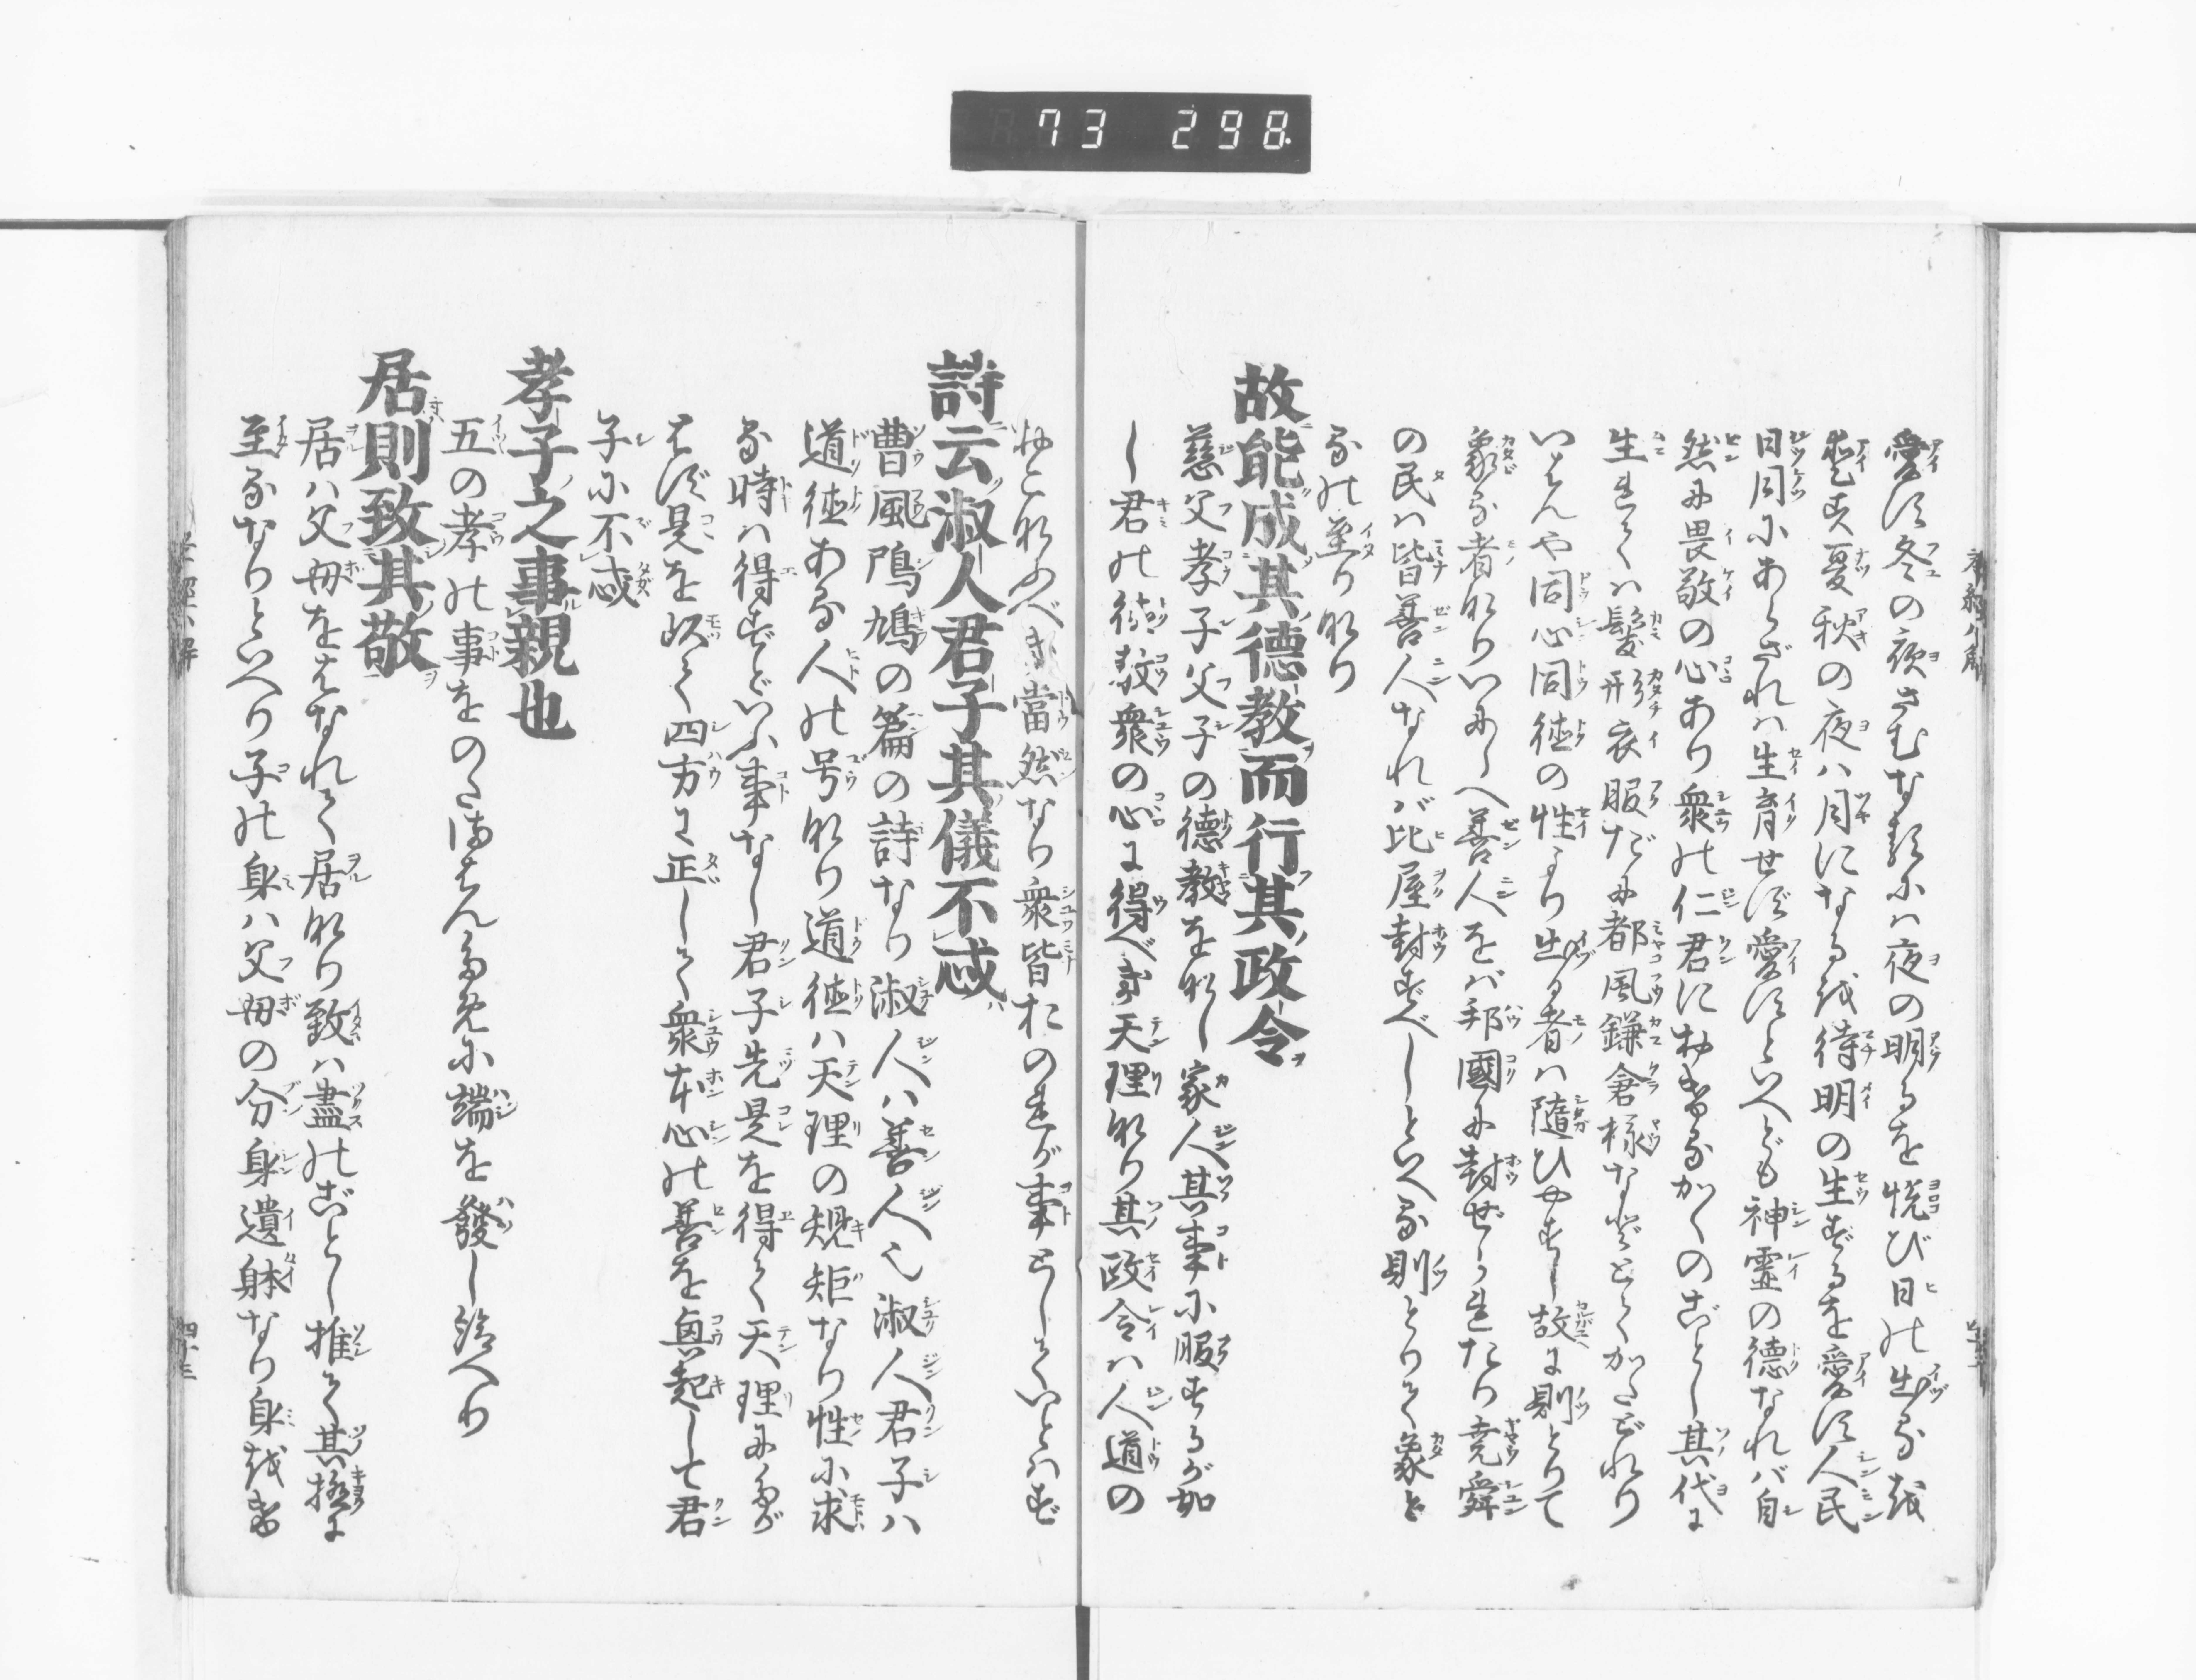 73 298.
愛す冬の夜さむな頼には夜の明るを悦び日の出るを
愛す夏秋の夜は月になるを待明の生ずるを愛す人民
日月にあらざれは生育せず愛すといへども神霊の徳なれバ自
然に畏敬の心あり衆の仁君におけるかくのごとし其代に
生れてハ髪形衣服だに都風鎌倉様などとてかたどれり
いはんや同心同徳の性より出る者ハ隨ひやすし故に則とりて
象る者なりいにしへ善人をバ邦國に封ぜられたり堯舜
の民ハ皆善人なれバ比屋封ずべしといへる則とりて象と
るの至りなり
故能成其德教而行其政令
慈父孝子父子の德教をなし家人其事に服するが如
し君の徳教衆の心に得べき天理なり其政令ハ人道の
おこなふべき當然なり衆皆おのれが事としていとはず
詩云淑人君子其儀不忒
曹風鳲鳩の篇の詩なり淑人ハ善人也淑人君子ハ
道徳ある人の号なり道徳ハ天理の規矩なり性に求
る時ハ得ずといふ事なし君子先是を得て天理にたが
はず是を以て四方に正しくて衆本心の善を興起して君
子に不忒
孝子之事親也
五の孝の事をのたまはんために端を發し給へり
居則致其敬
居ハ父母をはなれて居なり致ハ盡のごとし推て其極に
至るなりといへり子の身ハ父母の分身遺躰なり身をお
四十三